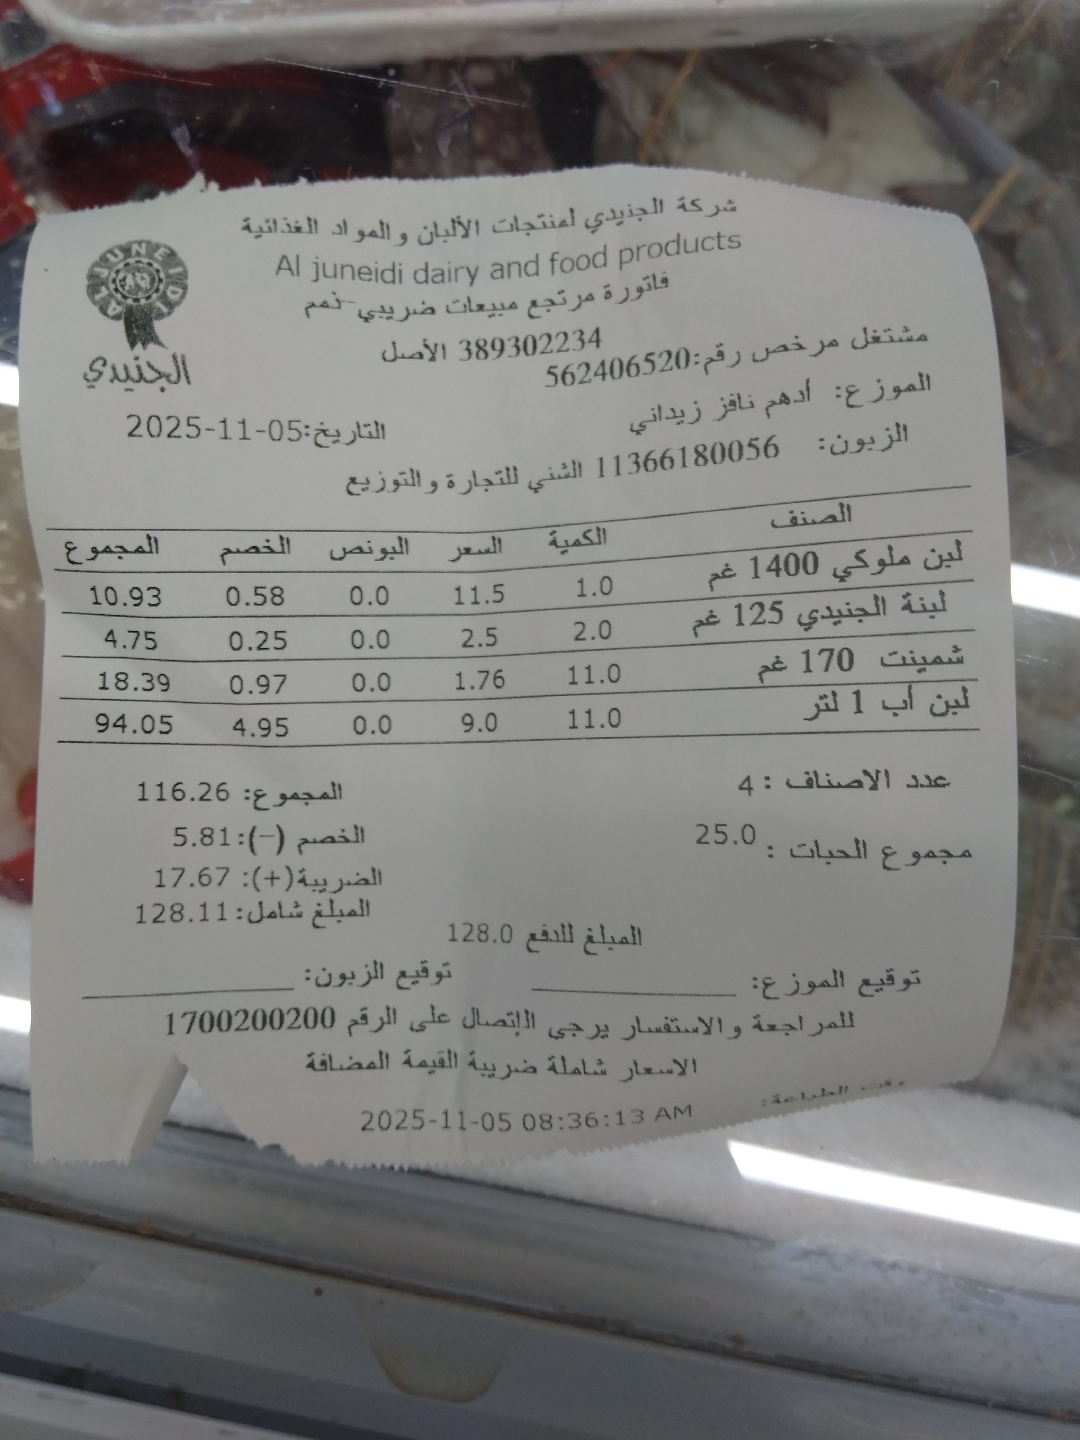 شركة الجنيدي لمنتجات الألبان والمواد الغذائية
Al juneidi dairy and food products
AL JUNEIDI
الجنيدي
فاتورة مرتجع مبيعات ضريبي-ذمم
389302234 الأصل
مشتغل مرخص رقم:562406520
الموزع: أدهم نافز زيداني
التاريخ:2025-11-05
الزبون: 11366180056 الشني للتجارة والتوزيع
الصنف الكمية السعر البونص الخصم المجموع
لبن ملوكي 1400 غم 1.0 11.5 0.0 0.58 10.93
لبنة الجنيدي 125 غم 2.0 2.5 0.0 0.25 4.75
شمينت 170 غم 11.0 1.76 0.0 0.97 18.39
لبن أب 1 لتر 11.0 9.0 0.0 4.95 94.05
عدد الاصناف : 4
المجموع: 116.26
مجموع الحبات : 25.0
الخصم (-):5.81
الضريبة(+): 17.67
المبلغ شامل:128.11
المبلغ للدفع 128.0
توقيع الموزع: توقيع الزبون:
للمراجعة والاستفسار يرجى الإتصال على الرقم 1700200200
الاسعار شاملة ضريبة القيمة المضافة
وقت الطباعة:
2025-11-05 08:36:13 AM